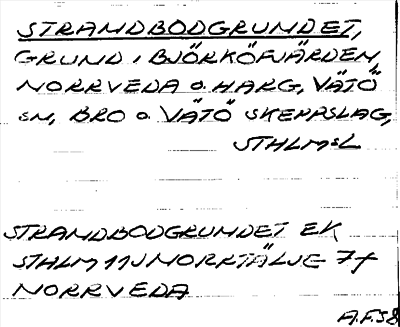 STRANDBODGRUNDET,
GRUND i BJÖRKÖFJÄRDEN,
NORRVEDA o. HARG, VÄTÖ
sn, BRO o. VÄTÖ SKEPPSLAG,
STHLMsL
STRANDBODGRUNDET EK
STHLM 11J NORRTÄLJE 7f
NORRVEDA
A.F.58